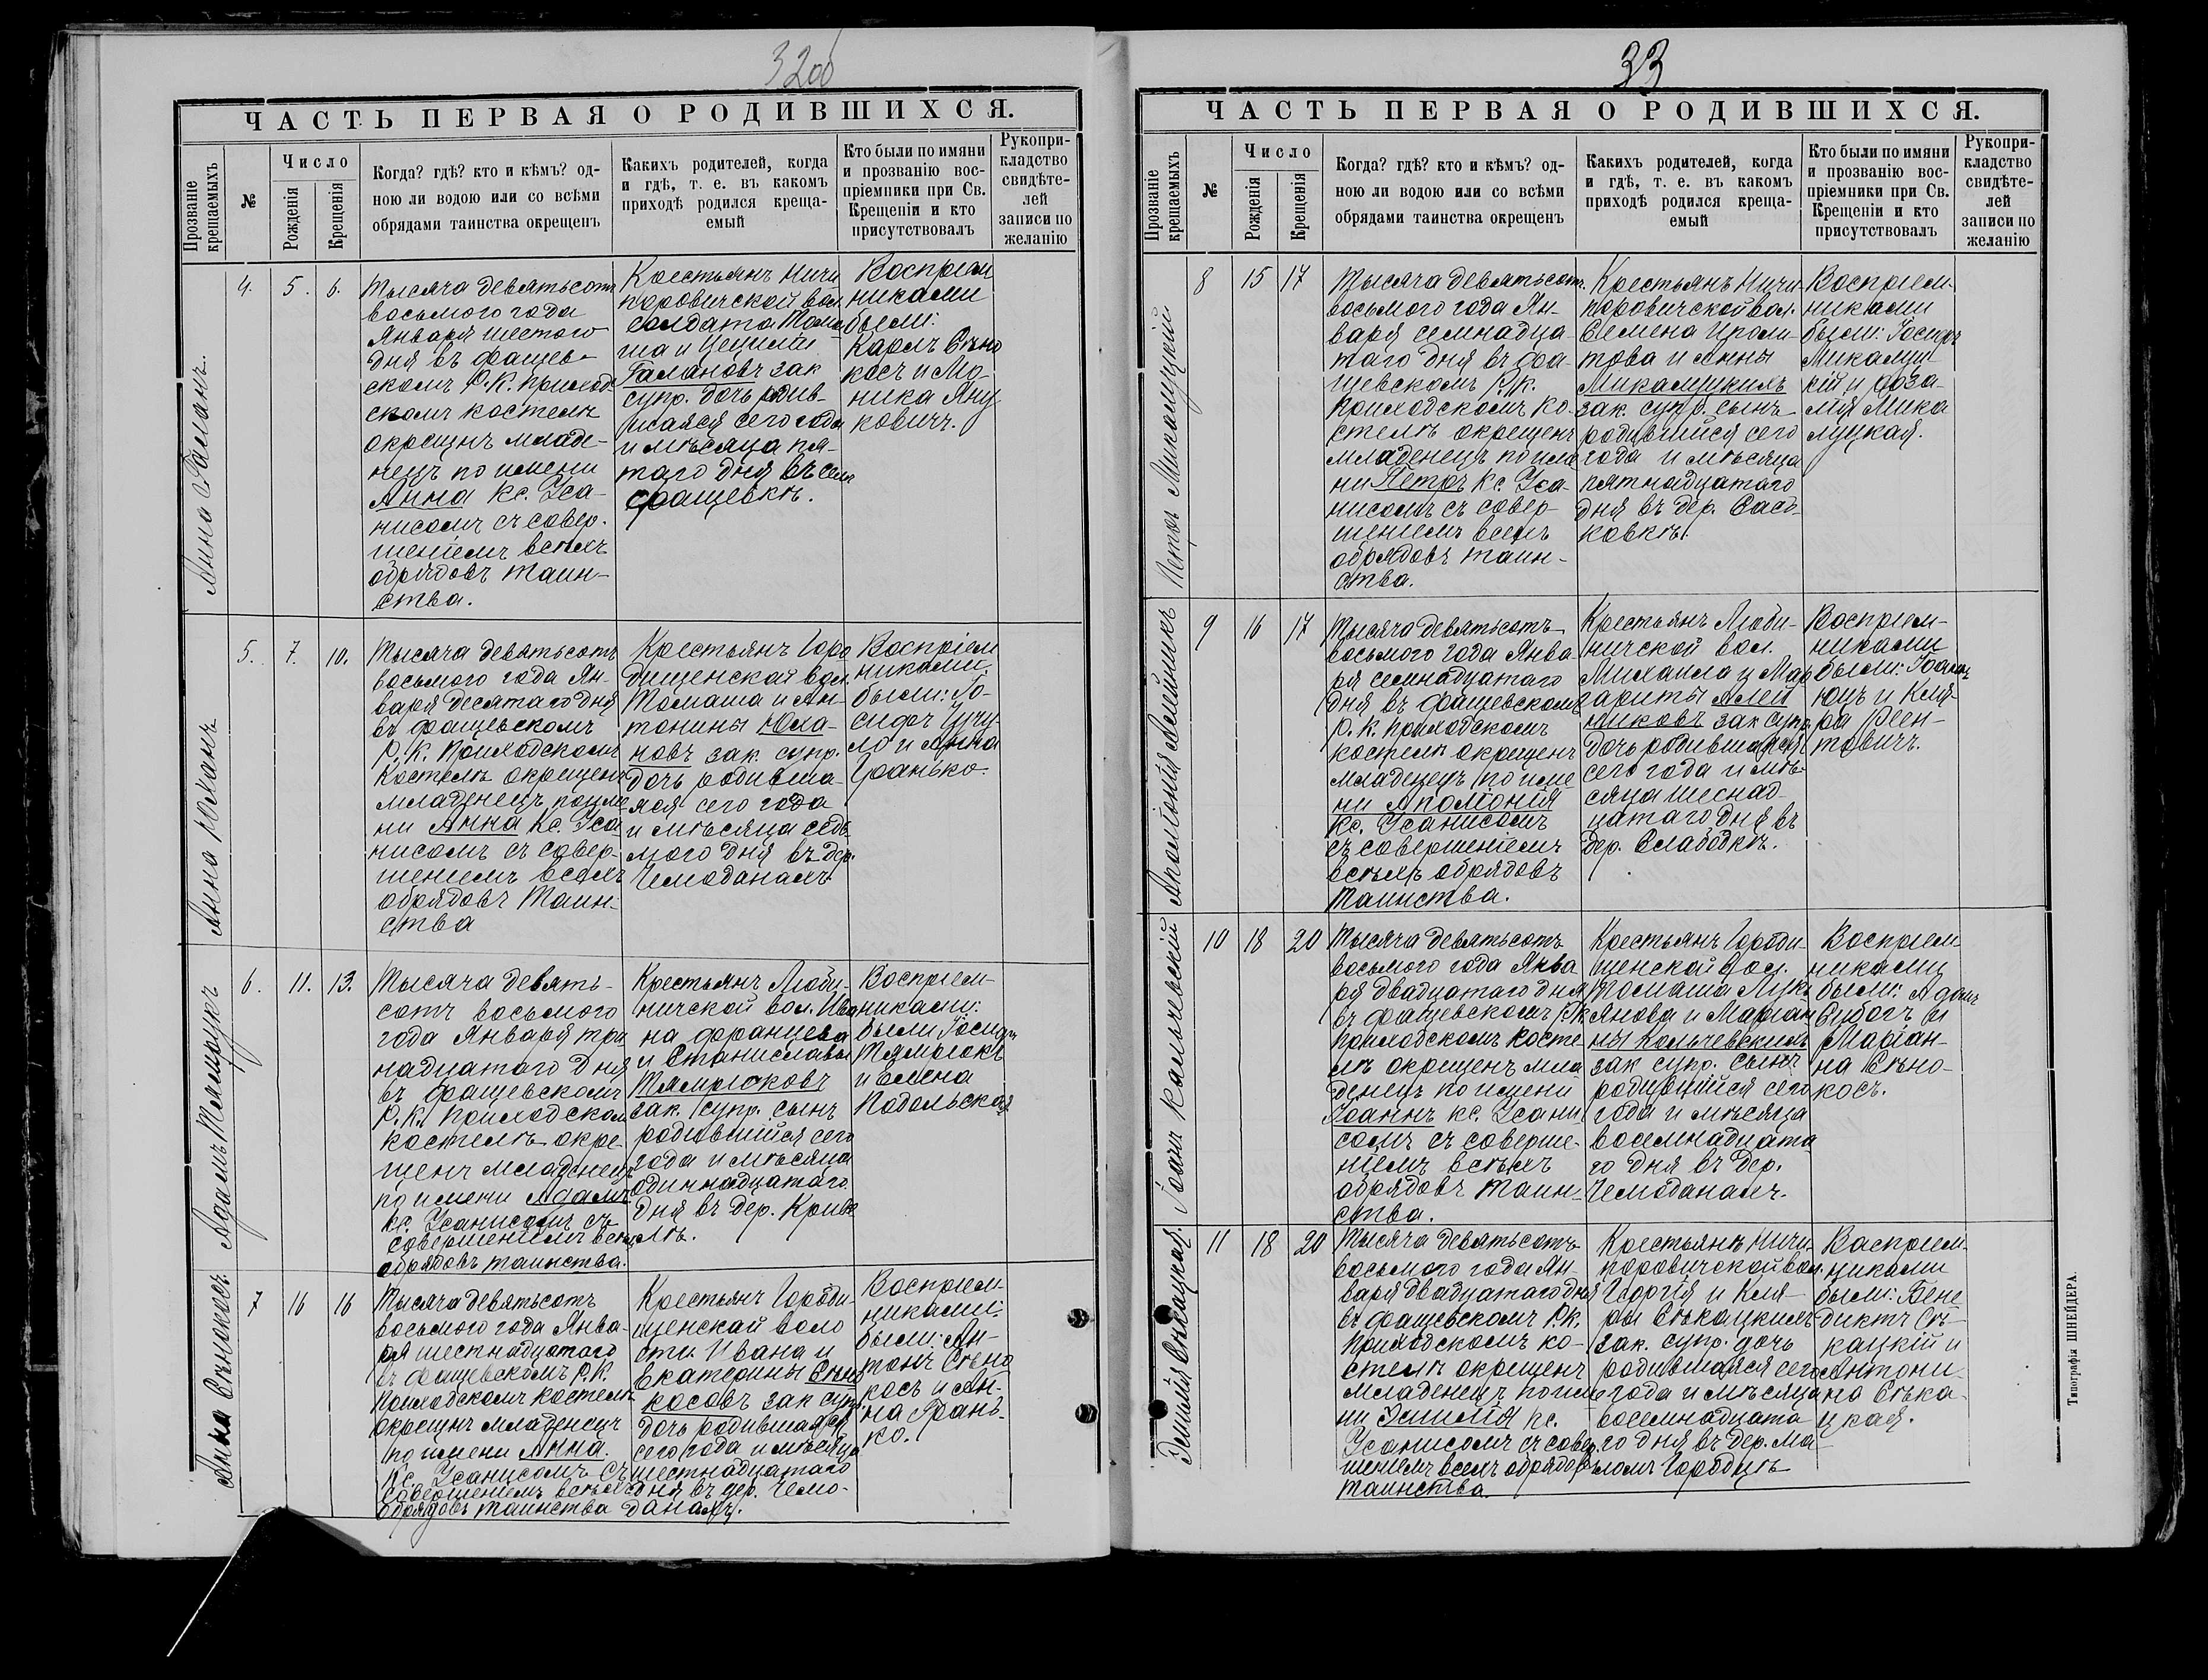 32об
ЧАСТЬ ПЕРВАЯ О РОДИВШИХСЯ.
Прозваніе крещаемыхъ
№
Число
Рожденія
Крещенія
Когда? гдѣ? кто и кѣмъ? од-
ною ли водою или со всѣми
обрядами таинства окрещенъ
Какихъ родителей, когда
и гдѣ, т. е. въ какомъ
приходѣ родился креща-
емый
Кто были по имяни
и прозванію вос-
пріемники при Св.
Крещеніи и кто
присутствовалъ
Рукопри-
кладство
свидѣте-
лей
записи по
желанію
Анна Галанъ.
4.
5.
6.
Тысяча девятьсотъ
восьмого года
Января шестого
дня въ Фащев-
скомъ Р.К. приход
скомъ костелѣ
окрещенъ младе-
нецъ по имени
Анна кс. Уса-
нисомъ съ совер-
шеніемъ всѣхъ
обрядовъ таин-
ства.
Крестьянъ Ничи
поровичской вол
солдата Тома
ша и Цециліи
Галановъ зак
супр. дочь родив-
шаяся сего года
и мѣсяца пя-
таго дня въ селѣ
Фащевкѣ.
Воспріем
никами
были:
Карлъ Сѣно
косъ и Мо
ника Яну
ковичъ.
Анна Юланъ
5.
7.
10.
Тысяча девятьсотъ
восьмого года Ян-
варя десятаго дня
въ Фащевскомъ
Р.К. приходскомъ
костелѣ окрещенъ
младенецъ по име
ни Анна кс. Уса
нисомъ съ совер-
шеніемъ всѣхъ
обрядовъ таин-
ства
Крестьянъ Горо
дищенской вол.
Томаша и Ан-
тонины Юла-
новъ зак. супр.
дочь родивша-
яся сего года
и мѣсяца седь
мого дня въ дер.
Чемоданахъ
Воспріем
никами
были: Іо-
сифъ Чучу-
ло и Анна
Гранько.
Адамъ Тямрюкъ
6.
11.
13.
Тысяча девять-
сотъ восьмого
года Января три
надцатаго дня
въ Фащевскомъ
Р.К. приходском
костелѣ окре-
щенъ младенецъ
по имени Адамъ
кс. Усанисомъ съ
совершеніемъ всѣхъ
обрядовъ таинства.
Крестьянъ Люби-
ничской вол. Ива
на Францева
и Станиславы
Тямрюковъ
зак. супр. сынъ
родившійся сего
года и мѣсяца
одиннадцатаго
дня въ дер. Криве
лѣ.
Воспріем-
никами:
были Іосифъ
Тямрюкъ
и Елена
Подольская
Анна Сѣнокосъ
7
16
16
Тысяча девятьсотъ
восьмого года Янва-
ря шестнадцатого
въ Фащевскомъ Р.К.
приходскомъ костелѣ
окрещенъ младенецъ
по имени Анна.
кс. Усанисомъ съ
совершеніемъ всѣхъ
обрядовъ таинства
Крестьянъ Городи-
щенской воло
сти Ивана и
Екатерины Сѣно
косовъ зак супр.
дочь родившаяся
сего года и мѣсяца
шестнадцатаго
дня въ дер. Чемо-
данахъ.
Воспріем-
никами:
были: Ан-
тонъ Сѣно
косъ и Ан-
на Грань-
ко.
33
ЧАСТЬ ПЕРВАЯ О РОДИВШИХСЯ.
Прозваніе крещаемыхъ
№
Число
Рожденія
Крещенія
Когда? гдѣ? кто и кѣмъ? од-
ною ли водою или со всѣми
обрядами таинства окрещенъ
Какихъ родителей, когда
и гдѣ, т. е. въ какомъ
приходѣ родился креща-
емый
Кто были по имяни
и прозванію вос-
пріемники при Св.
Крещеніи и кто
присутствовалъ
Рукопри-
кладство
свидѣте-
лей
записи по
желанію
Петръ Микалуцкій
8
15
17
Тысяча девятьсот.
восьмого года Ян-
варя семнадца-
таго дня въ Фа-
щевскомъ Р.К.
приходскомъ ко-
стелѣ окрещенъ
младенецъ по име
ни Петръ кс. Уса-
нисомъ съ совер-
шеніемъ всѣхъ
обрядовъ таин-
ства.
Крестьянъ Ничи-
поровичской вол.
Семена Ипали-
това и Анны
Микалуцкихъ
зак. супр. сынъ
родившійся сего
года и мѣсяца
пятнадцатаго
дня въ дер. Савь-
ковкѣ.
Воспріем-
никами
были: Іосифъ
Микалуц
кій и Роза-
лія Мика
луцкая.
Аполіонія Алейникъ
9
16
17
Тысяча девятьсотъ
восьмого года Янва
ря семнадцатаго
дня въ Фащевскомъ
Р.К. приходскомъ
костелѣ окрещенъ
младенецъ по име
ни Аполіонія
кс. Усанисомъ
съ совершеніемъ
всѣхъ обрядовъ
таинства.
Крестьянъ Люби-
ничской вол.
Михаила и Мар
гариты Алей
никовъ зак супр.
дочь родившаяся
сего года и мѣ-
сяца шеснад
цатаго дня въ
дер. Слабодкѣ.
Воспріем-
никами
были: Іоаннъ
Юцъ и Кля-
ра Реен-
товичъ.
Іоанъ Кольчевскій
10
18
20
Тысяча девятьсотъ
восьмого года Янва
ря двадцатаго дня
въ Фащевскомъ Р.К
приходскомъ косте
лѣ окрещенъ мла
денецъ по имени
Іоаннъ кс. Усани
сомъ съ соверше-
ніемъ всѣхъ
обрядовъ таин-
ства.
Крестьянъ Городи-
щенской вол.
Томаша Лукь
янова и Маріан
ны Кольчевскихъ
зак супр. сынъ
родившійся сего
года и мѣсяца
восемнадцата
го дня въ дер.
Чемоданахъ.
Воспріем
никами
были: Адамъ
Сиботъ и
Маріан-
на Сѣно-
косъ.
Эмилія Сѣкацкая.
11
18
20
Тысяча девятьсотъ
восьмого года Ян-
варя двадцатаго дня
въ Фащевскомъ Р.К.
приходскомъ ко-
стелѣ окрещенъ
младенецъ по име
ни Эмилія кс.
Усанисомъ съ совер-
шеніемъ всехъ обрядовъ
таинства.
Крестьянъ Ничи-
поровичской вол.
Георгія и Кля-
ры Сѣкацкихъ
зак. супр. дочь
родившаяся сего
года и мѣсяца
восемнадцата
го дня въ дер. Ма-
ломъ Городцѣ
Воспріем-
никами
были: Бене
диктъ Сѣ-
кацкій и
Антони-
на Сѣка-
цкая.
Типографія ШНЕЙДЕРА.